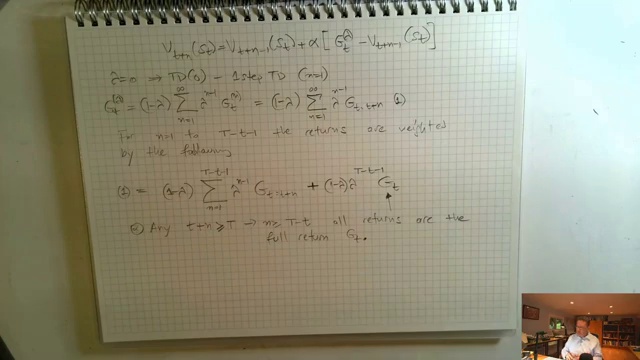 V_{t+n}(S_t) = V_{t+n-1}(S_t) + α[G_t^λ - V_{t+n-1}(S_t)]
λ=0 ⇒ TD(0) - 1 step TD (n=1)
G_t^λ = (1-λ) ∑_{n=1}^{∞} λ^{n-1} G_t^{(n)} = (1-λ) ∑_{n=1}^{∞} λ^{n-1} G_{t:t+n} (1)
For n=1 to T-t-1 the returns are weighted
by the following
(1) = (1-λ) ∑_{n=1}^{T-t-1} λ^{n-1} G_{t:t+n} + (1-λ) λ^{T-t-1} G_t
Any t+n ≥ T → n ≥ T-t all returns are the
full return G_t.